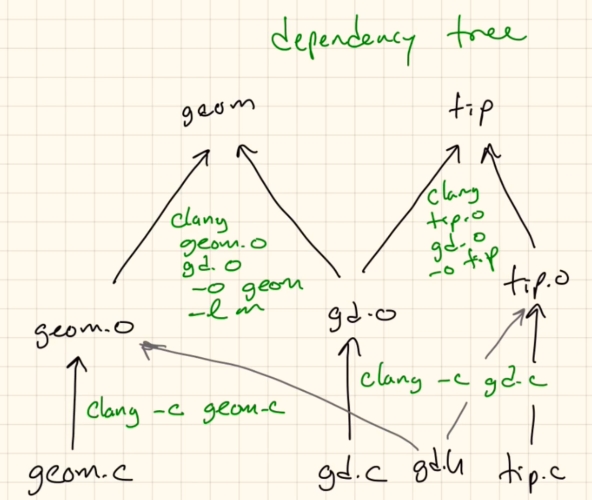 dependency tree
geom
tip
clang
geom.o
gd.o
-o geom
-l m
clang
tip.o
gd.o
-o tip
geom.o
gd.o
tip.o
clang -c geom.c
clang -c gd.c
geom.c
gd.c
gd.h
tip.c